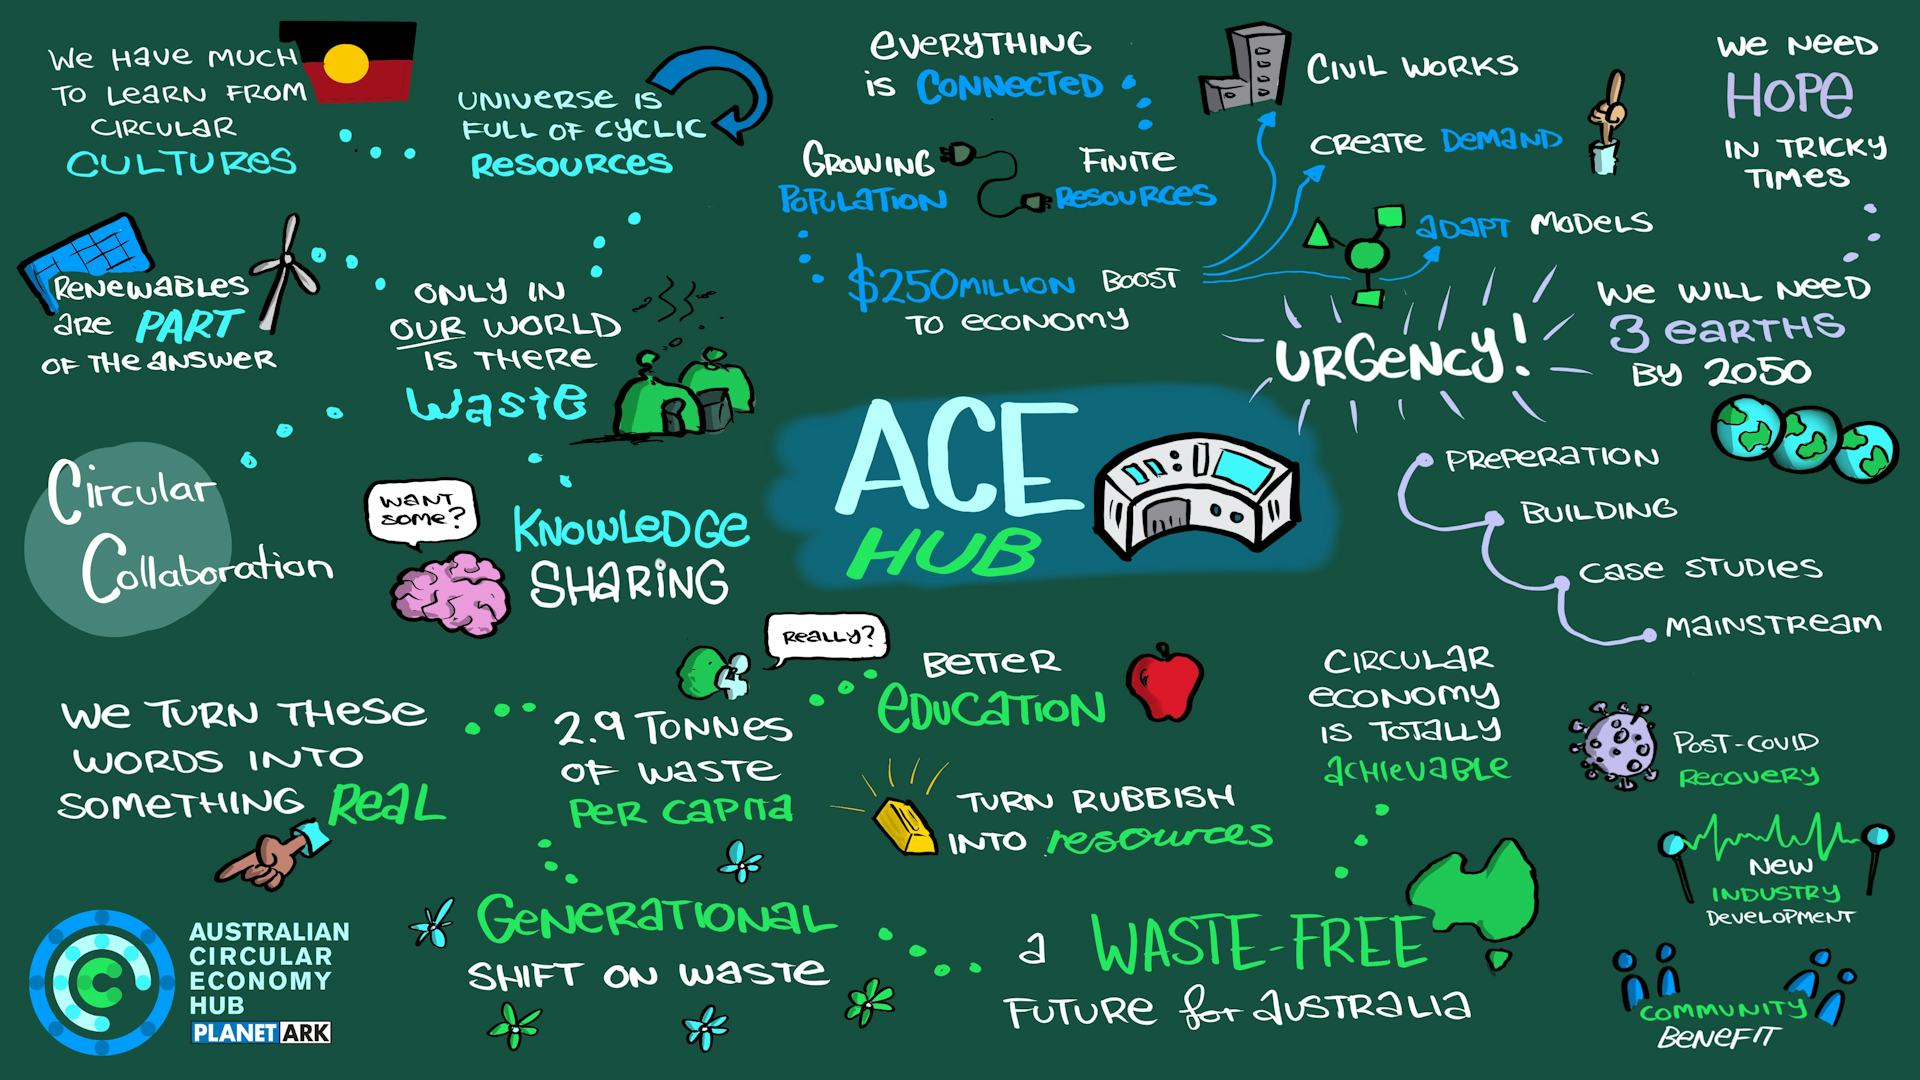 We Have much
TO Learn From
Circular
Cultures
Universe is
Full of Cyclic
Resources
Everything
is Connected
Growing
Population
Finite
Resources
$250million Boost
to economy
Civil Works
Create Demand
Adapt Models
We Need
Hope
in tricky
times
Urgency!
We will need
3 earths
by 2050
Renewables
are PART
of the answer
Only in
our world
is there
Waste
Circular
Collaboration
Want
some?
Knowledge
Sharing
ACE
HUB
Preperation
Building
Case Studies
Mainstream
We turn these
words into
something Real
Really?
2.9 Tonnes
of waste
per capita
Better
Education
Turn rubbish
into resources
Circular
economy
is totally
achievable
Post-Covid
Recovery
New
Industry
Development
Generational
shift on waste
a Waste-Free
Future for Australia
Community
Benefit
AUSTRALIAN
CIRCULAR
ECONOMY
HUB
PLANET ARK